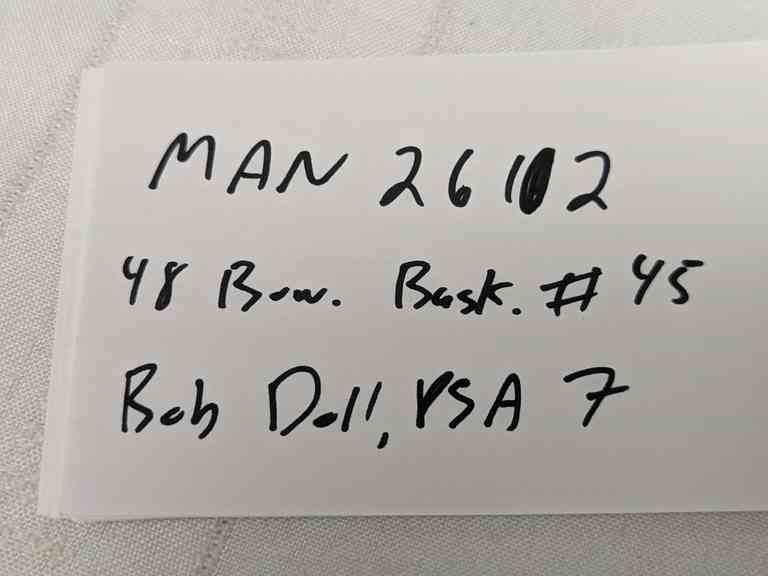 MAN 26102
48 Bow. Bask. # 45
Bob Doll, PSA 7